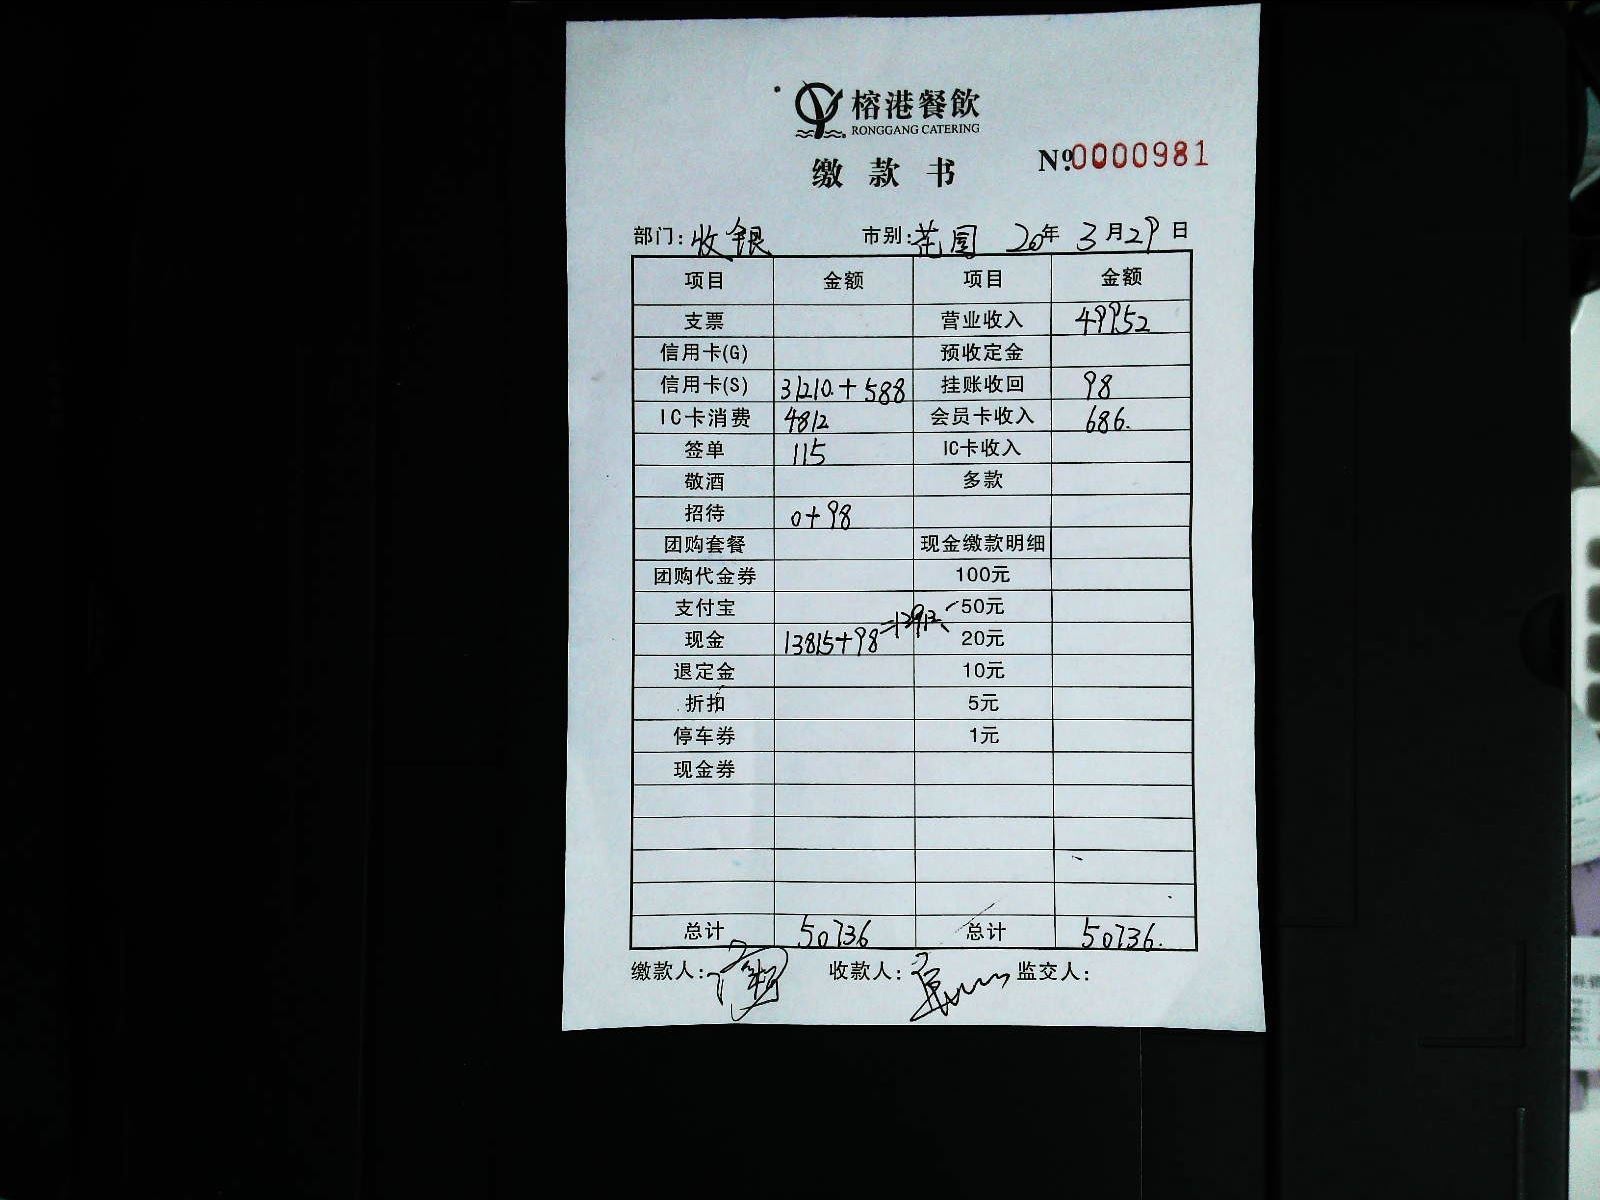 榕港餐飲
RONGGANG CATERING
缴款书 №0000981
部门：收银 市别：花园 20年3月29日
项目 金额 项目 金额
支票 营业收入 49952
信用卡(G) 预收定金
信用卡(S) 31210.+588 挂账收回 98
IC卡消费 4812 会员卡收入 686.
签单 115 IC卡收入
敬酒 多款
招待 0+98
团购套餐 现金缴款明细
团购代金券 100元
支付宝 50元
现金 13815+98 20元
退定金 10元
折扣 5元
停车券 1元
现金券
总计 50736 总计 50736.
缴款人： 收款人： 监交人：